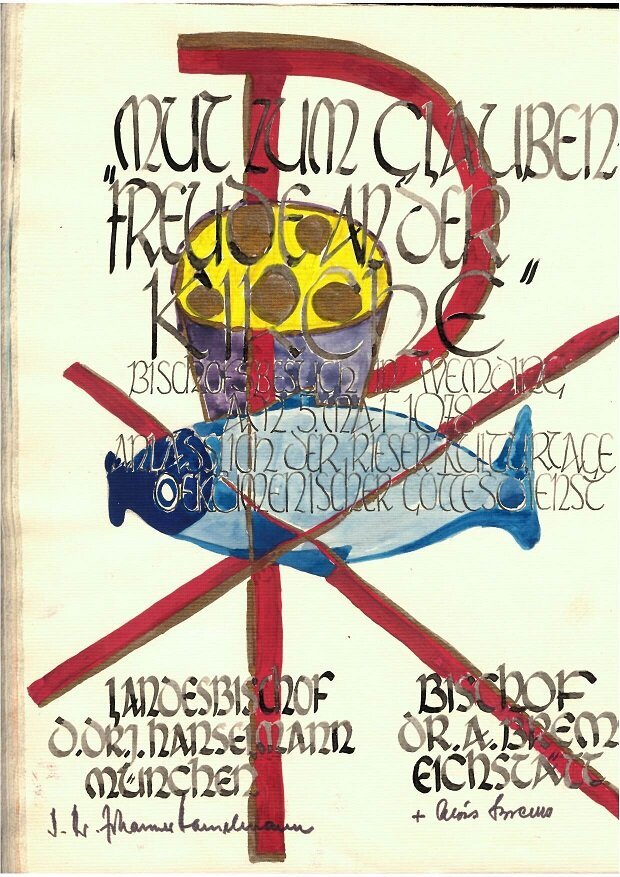 „MUT ZUM GLAUBEN
"FREUDE AN DER
KIRCHE"
BISCHOFSBESUCH IN WEMDING
AM 5.MAI 1978
ANLÄSSLICH DER RIESER KULTURTAGE
OEKUMENISCHER GOTTESDIENST
LANDESBISCHOF
D.DR.J.HANSELMANN
MÜNCHEN
D. Dr. Johannes Hanselmann
BISCHOF
DR.A.BREM
EICHSTÄTT
+ Alois Brems